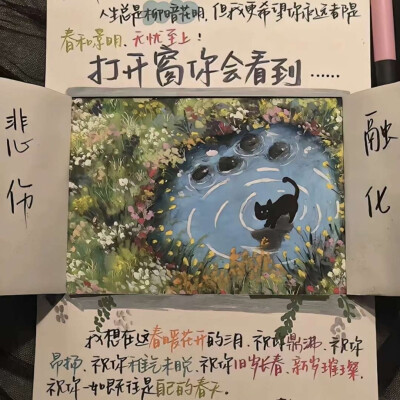 人生总是柳暗花明，但我更希望你永远都是
春和景明，无忧至上！
打开窗你会看到……
悲伤
融化
我想在这春暖花开的三月，祝你鼎沸，祝你
昂扬，祝你稚气未脱，祝你旧岁长春，新岁璀璨，
祝你一如既往是自己的春天。